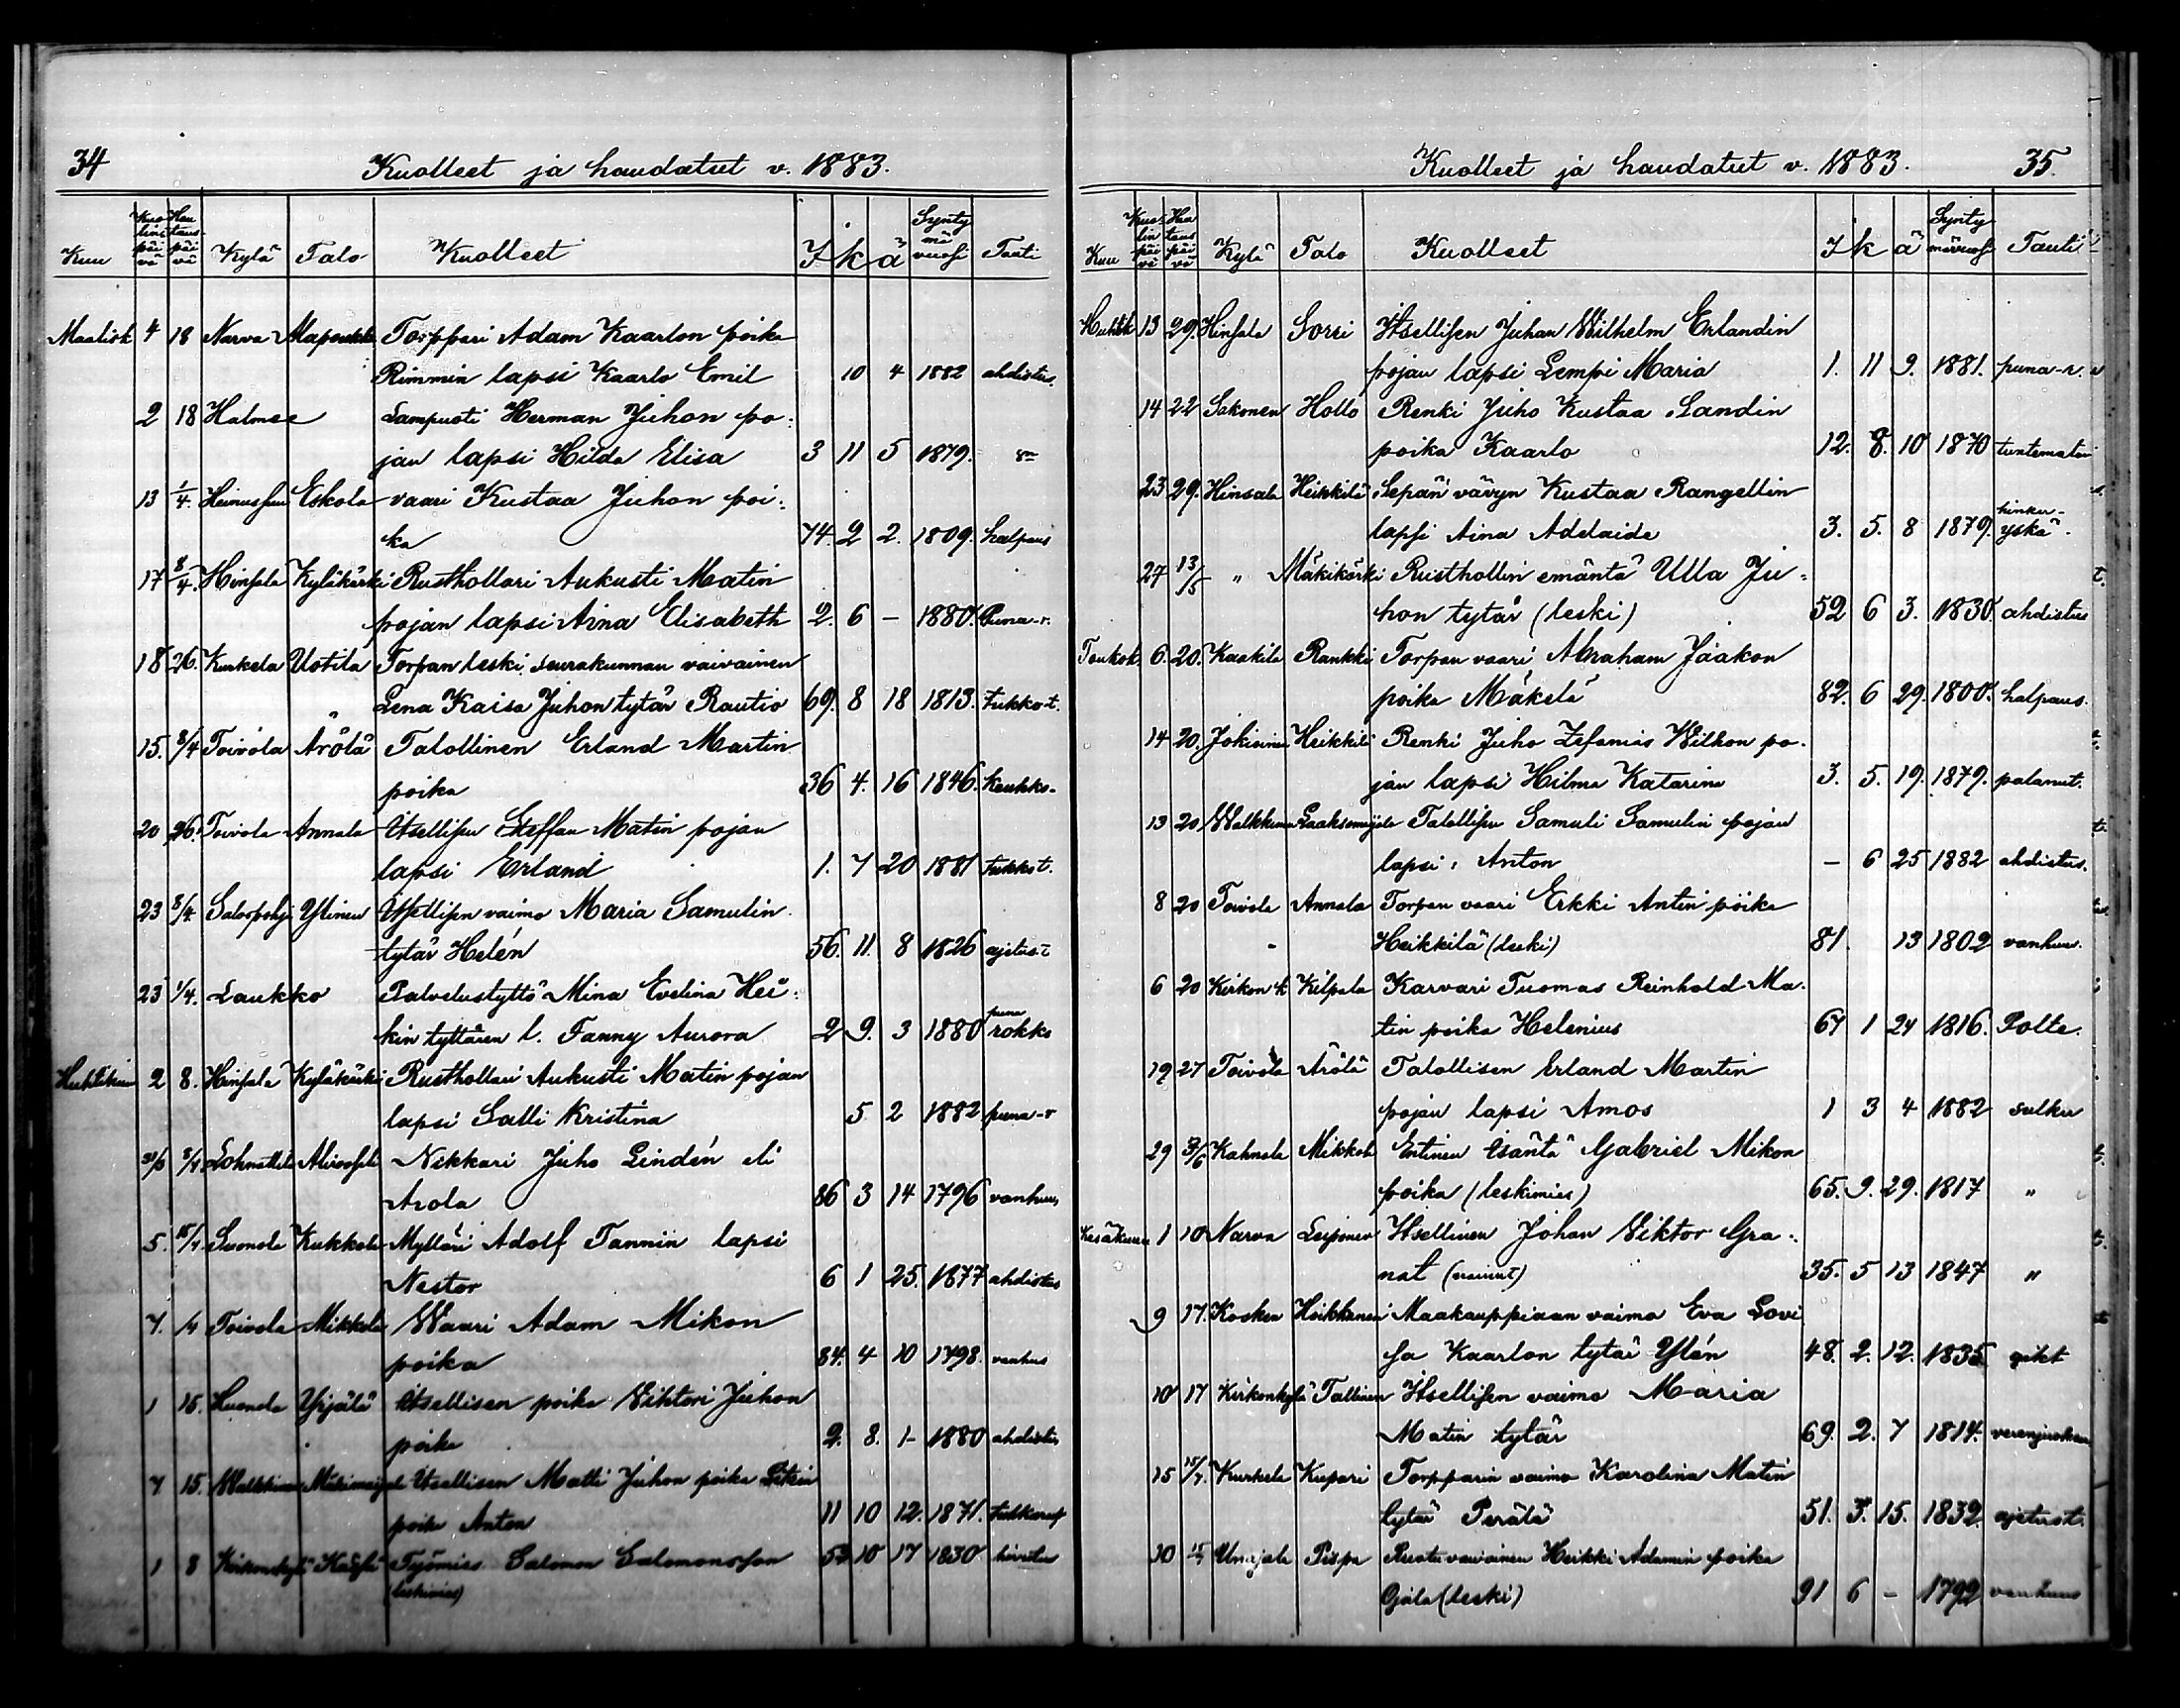 34
Kuolleet ja haudatut v. 1883.
Kuu Kuolinpäivä Hautauspäivä Kylä Talo Kuolleet I k ä Syntymä vuosi Tauti
Maalisk 4 18 Narva Torppari Adam Kaarlon poika
Rimmin lapsi Kaarlo Emil 10 4 1882 ahdistus.
2 18 Halmee Lampuoti Herman Juhon po-
jan lapsi Hilda Elisa 3 11 5 1879.
13 1/4. Eskola vaari Kustaa Juhon poi-
ka 74. 2 2. 1809. halpaus
17 8/4. Hinsala Kyläkärki Rusthollari Aukusti Matin
pojan lapsi Aina Elisabeth 2. 6 – 1880. Puna-r.
18 26. Kurkela Uotila Torpan leski, seurakunnan vaivainen
Lena Kaisa Juhon tytär Rautio 69. 8 18 1813. tukko-t.
15. 8/4 Toivola Arölä Talollinen Erland Martin
poika 36 4. 16 1846. keuhko-
20 26. Toivola Annala Itsellisen Steffan Matin pojan
lapsi Erland 1. 7 20 1881 tukkot.
23 8/4. Ylinen Itsellisen vaimo Maria Samulin
tytär Helén 56. 11. 8 1826 ajetus-t
23 1/4. Laukko Palvelustyttö Mina Evelina Hei-
kin tyttären l. Fanny Aurora 2 9. 3 1880 puna rokko
Huhtikuu 2 8. Hinsala Kyläkärki Rusthollari Aukusti Matin pojan
lapsi Salli Kristina 5 2 1882 puna-r
8/4 Nikkari Juho Lindén eli
Arola 86 3 14 1796 vanhuus
5. 15/4 Kukkola Mylläri Adolf Tannin lapsi
Nestor 6 1 25. 1877 ahdistus
7. Toivola Mikkola Waari Adam Mikon
poika 84. 4 10 1798. vanhus
1 15. Yrjälä Itsellisen poika Viktori Juhon
poika 2. 8. 1 1880 ahdistus
7 15. Itsellisen Matti Juhon poika
poika Anton 11 10 12. 1871.
1 8 Kirkonkylä Työmies Salomon Salomonsson 10 17 1830
(leskimies)
35.
Kuolleet ja haudatut v. 1883.
Kuu Kuolinpäivä Hautauspäivä Kylä Talo Kuolleet I k ä Syntymävuosi Tauti
Huhtik 13 29. Hinsala Sorri Itsellisen Juhan Wilhelm Erlandin
pojan lapsi Lempi Maria 1. 11 9. 1881. puna-r.
14 22 Sakonen Hollo Renki Juho Kustaa Sandin
poika Kaarlo 12. 8. 10 1870 tuntematoin
23 29. Hinsala Heikkilä Sepän vävyn Kustaa Rangellin
lapsi Aina Addaide 3. 5. 8 1879. hinku-yskä.
27 13/5 " Mäkikärki Rusthollin emäntä Ulla Ju-
hon tytär (leski) 52 6 3. 1830. ahdistus
Toukok. 6. 20. Kaakila Rankki Torpan vaari Abraham Jaakon
poika Mäkelä 82. 6 29. 1800. halpaus.
14 20. Jokioinen Heikkilä Renki Juho Zefanias Wilhon po-
jan lapsi Hilma Katarina 3. 5. 19. 1879. palanut.
13 20 Talollisen Samuli Samulin pojan
lapsi Anton – 6 25 1882 ahdistus.
8 20 Toivola Annala Torpan vaari Erkki Antin poika
Heikkilä (leski) 81. 13 1802 vanhuus.
6 20 Kirkon k Kilpala Karvari Tuomas Reinhold Ma-
tin poika Helenius 67 1 24 1816. Polte.
19 27 Toivola Arölä Talollisen Erland Martin
pojan lapsi Amos 1 3 4 1882 sulku
29 3/6 Kahnola Mikkola Entinen isäntä Gabriel Mikon
poika (leskimies) 65. 9. 29. 1817 "
Kesäkuu 1 10 Narva Leiponen Itsellinen Johan Viktor Gra-
nat (nainut) 35. 5 13 1847 "
9 17. Kosken Heikkanen Maakauppiaan vaimo Eva Lovi
sa Kaarlon tytär Ylén 48. 2. 12. 1835. gikt
10 17 Kirkonkylä Tallinen Itsellisen vaimo Maria
Matin tytär 69. 2. 7 1814. verenjuoksu
15 15/7. Kurkela Kupari Torpparin vaimo Karolina Matin
tytär Perälä 51. 3. 15. 1832. ajetust.
10 Pispa Ruotuvaivainen Heikki Adamin poika
Ojala (leski) 91 6 – 1792 vanhuus